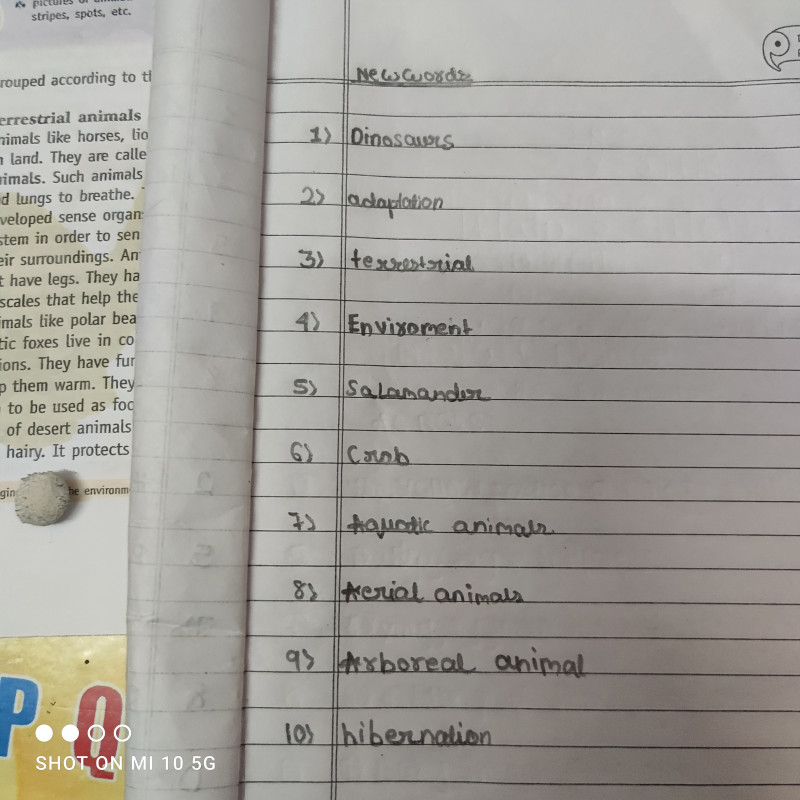 pictures of
stripes, spots, etc.
rouped according to th
errestrial animals
nimals like horses, lio
n land. They are calle
nimals. Such animals
d lungs to breathe.
veloped sense organ
stem in order to sen
eir surroundings. An
t have legs. They ha
scales that help the
imals like polar bea
tic foxes live in co
ions. They have fur
p them warm. They
to be used as foo
of desert animals
hairy. It protects
gin he environm
P Q
New words
1) Dinosaurs
2) adaptation
3) terrestrial
4) Enviroment
5) Salamander
6) Crab
7) Aquatic animals
8) Aerial animals
9) Arboreal animal
10) hibernation
SHOT ON MI 10 5G